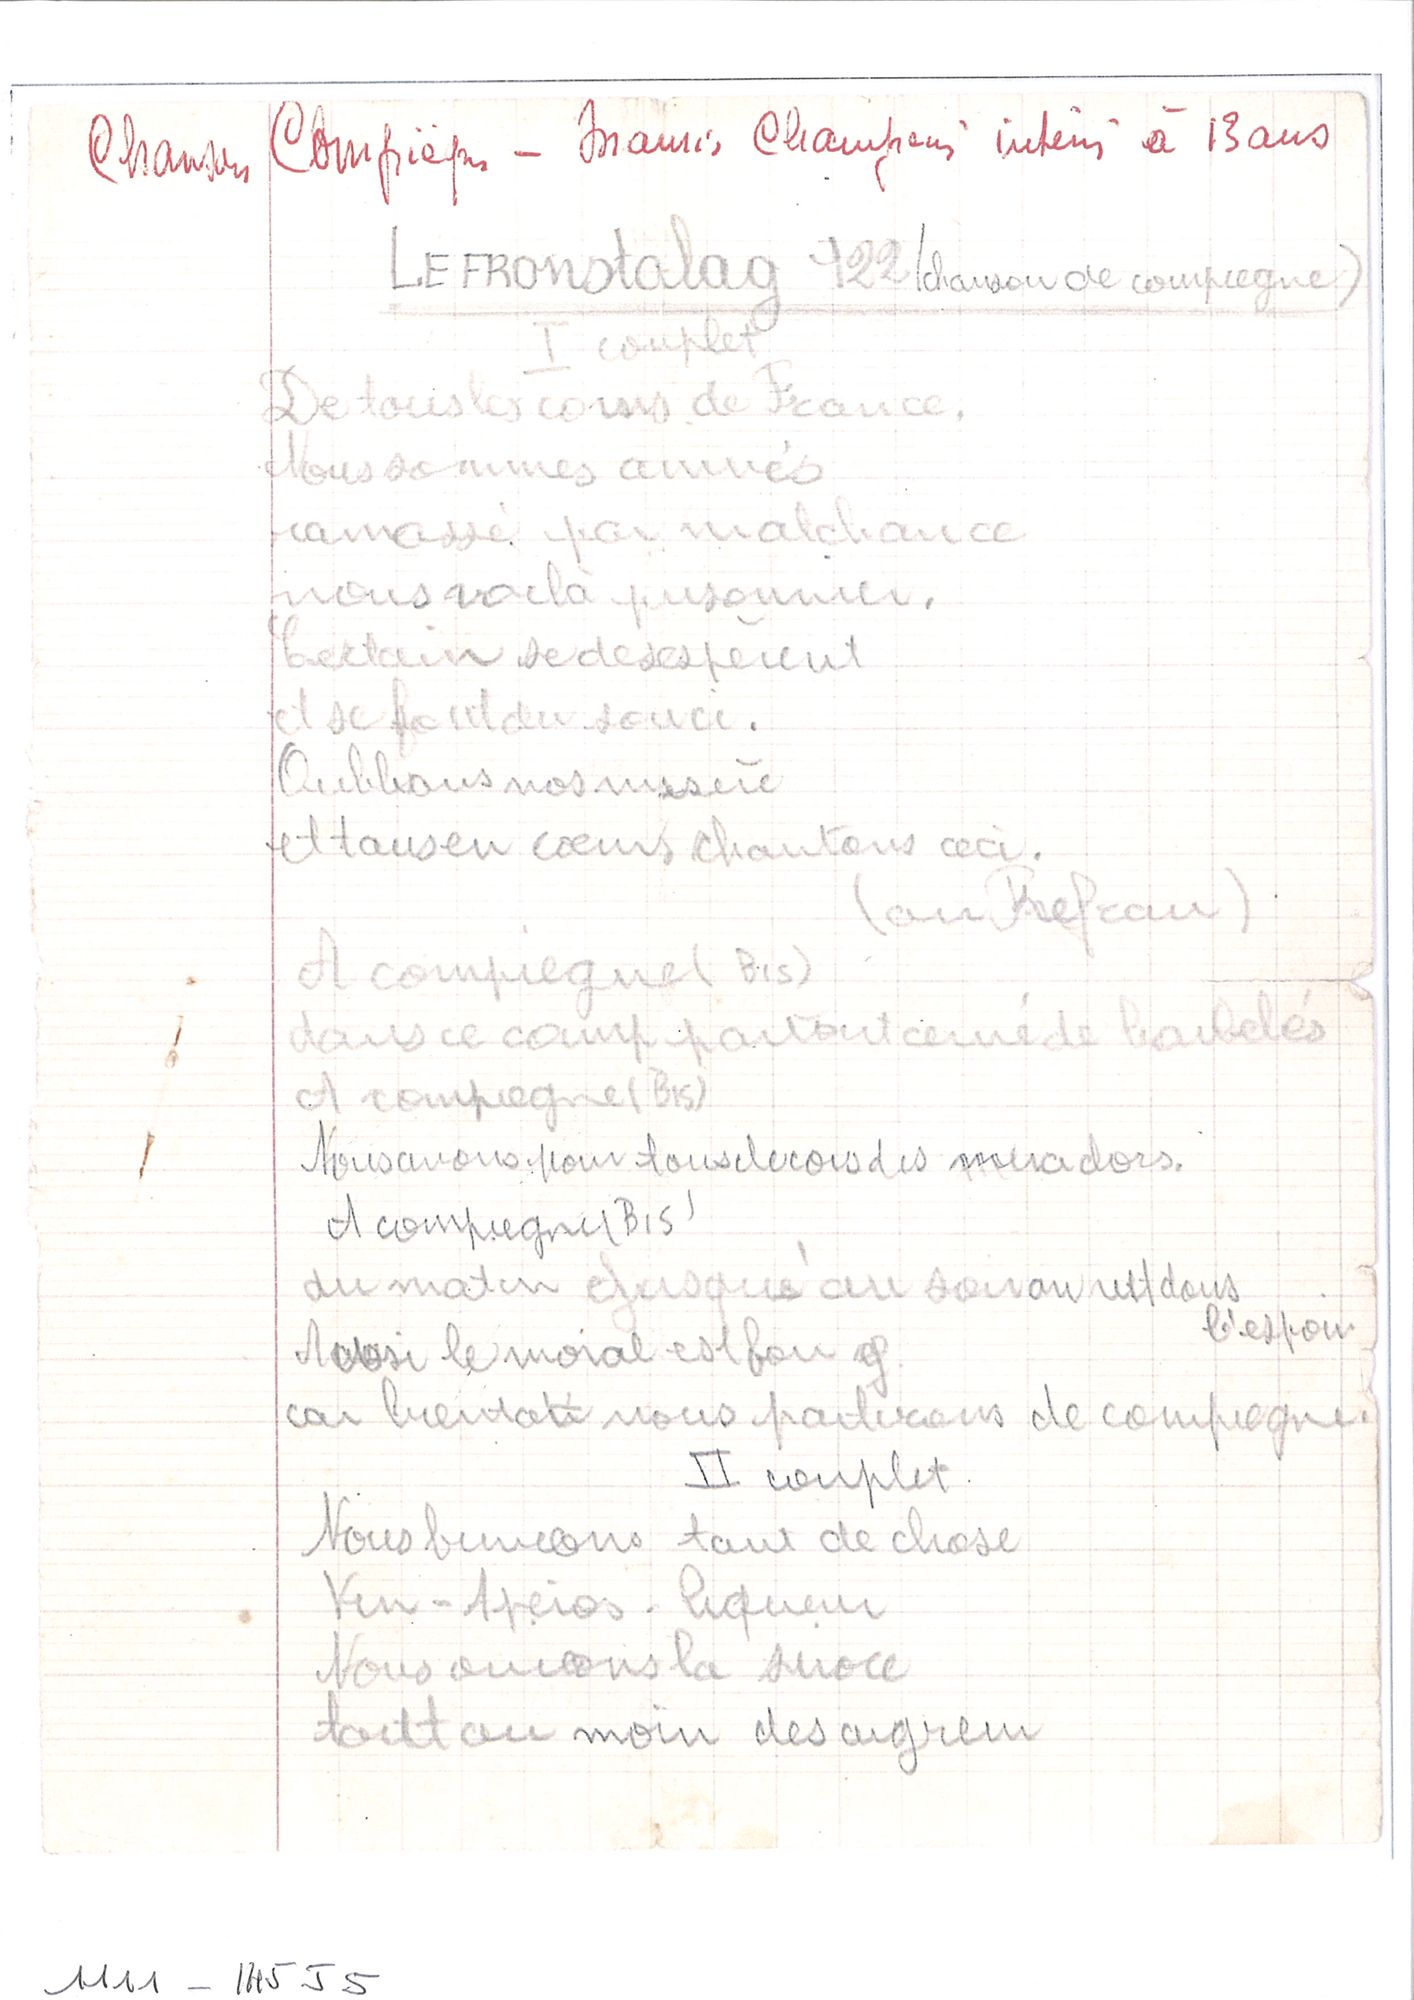 Chanson Compiègne - Mauris Champeni interni à 13 ans
LE FRONSTALAG 122 (chanson de compiegne)
I couplet
De tous les coins de France,
Nous sommes arrivés
ramassé par malchance
nous voilà prisonnier.
Certain se désespèrent
et se font du souci.
Oublions nos misère
et tous en cœurs chantons ceci.
(au Refrau)
A compiegne (BIS)
dans ce camp partout cerné de barbelés
A compiegne (BIS)
Nous avons pour tous decors des miradors.
A compiegne (BIS)
du matin jusqu'au soir on est dans
l'espoir
Aussi le moral est bon
car bientot nous partirons de compiegne.
II couplet
Nous buvions tant de chose
Vin - Apéros - liqueur
Nous avions la siroce
tout au moin des aigreur
1111 - 1HS J 5